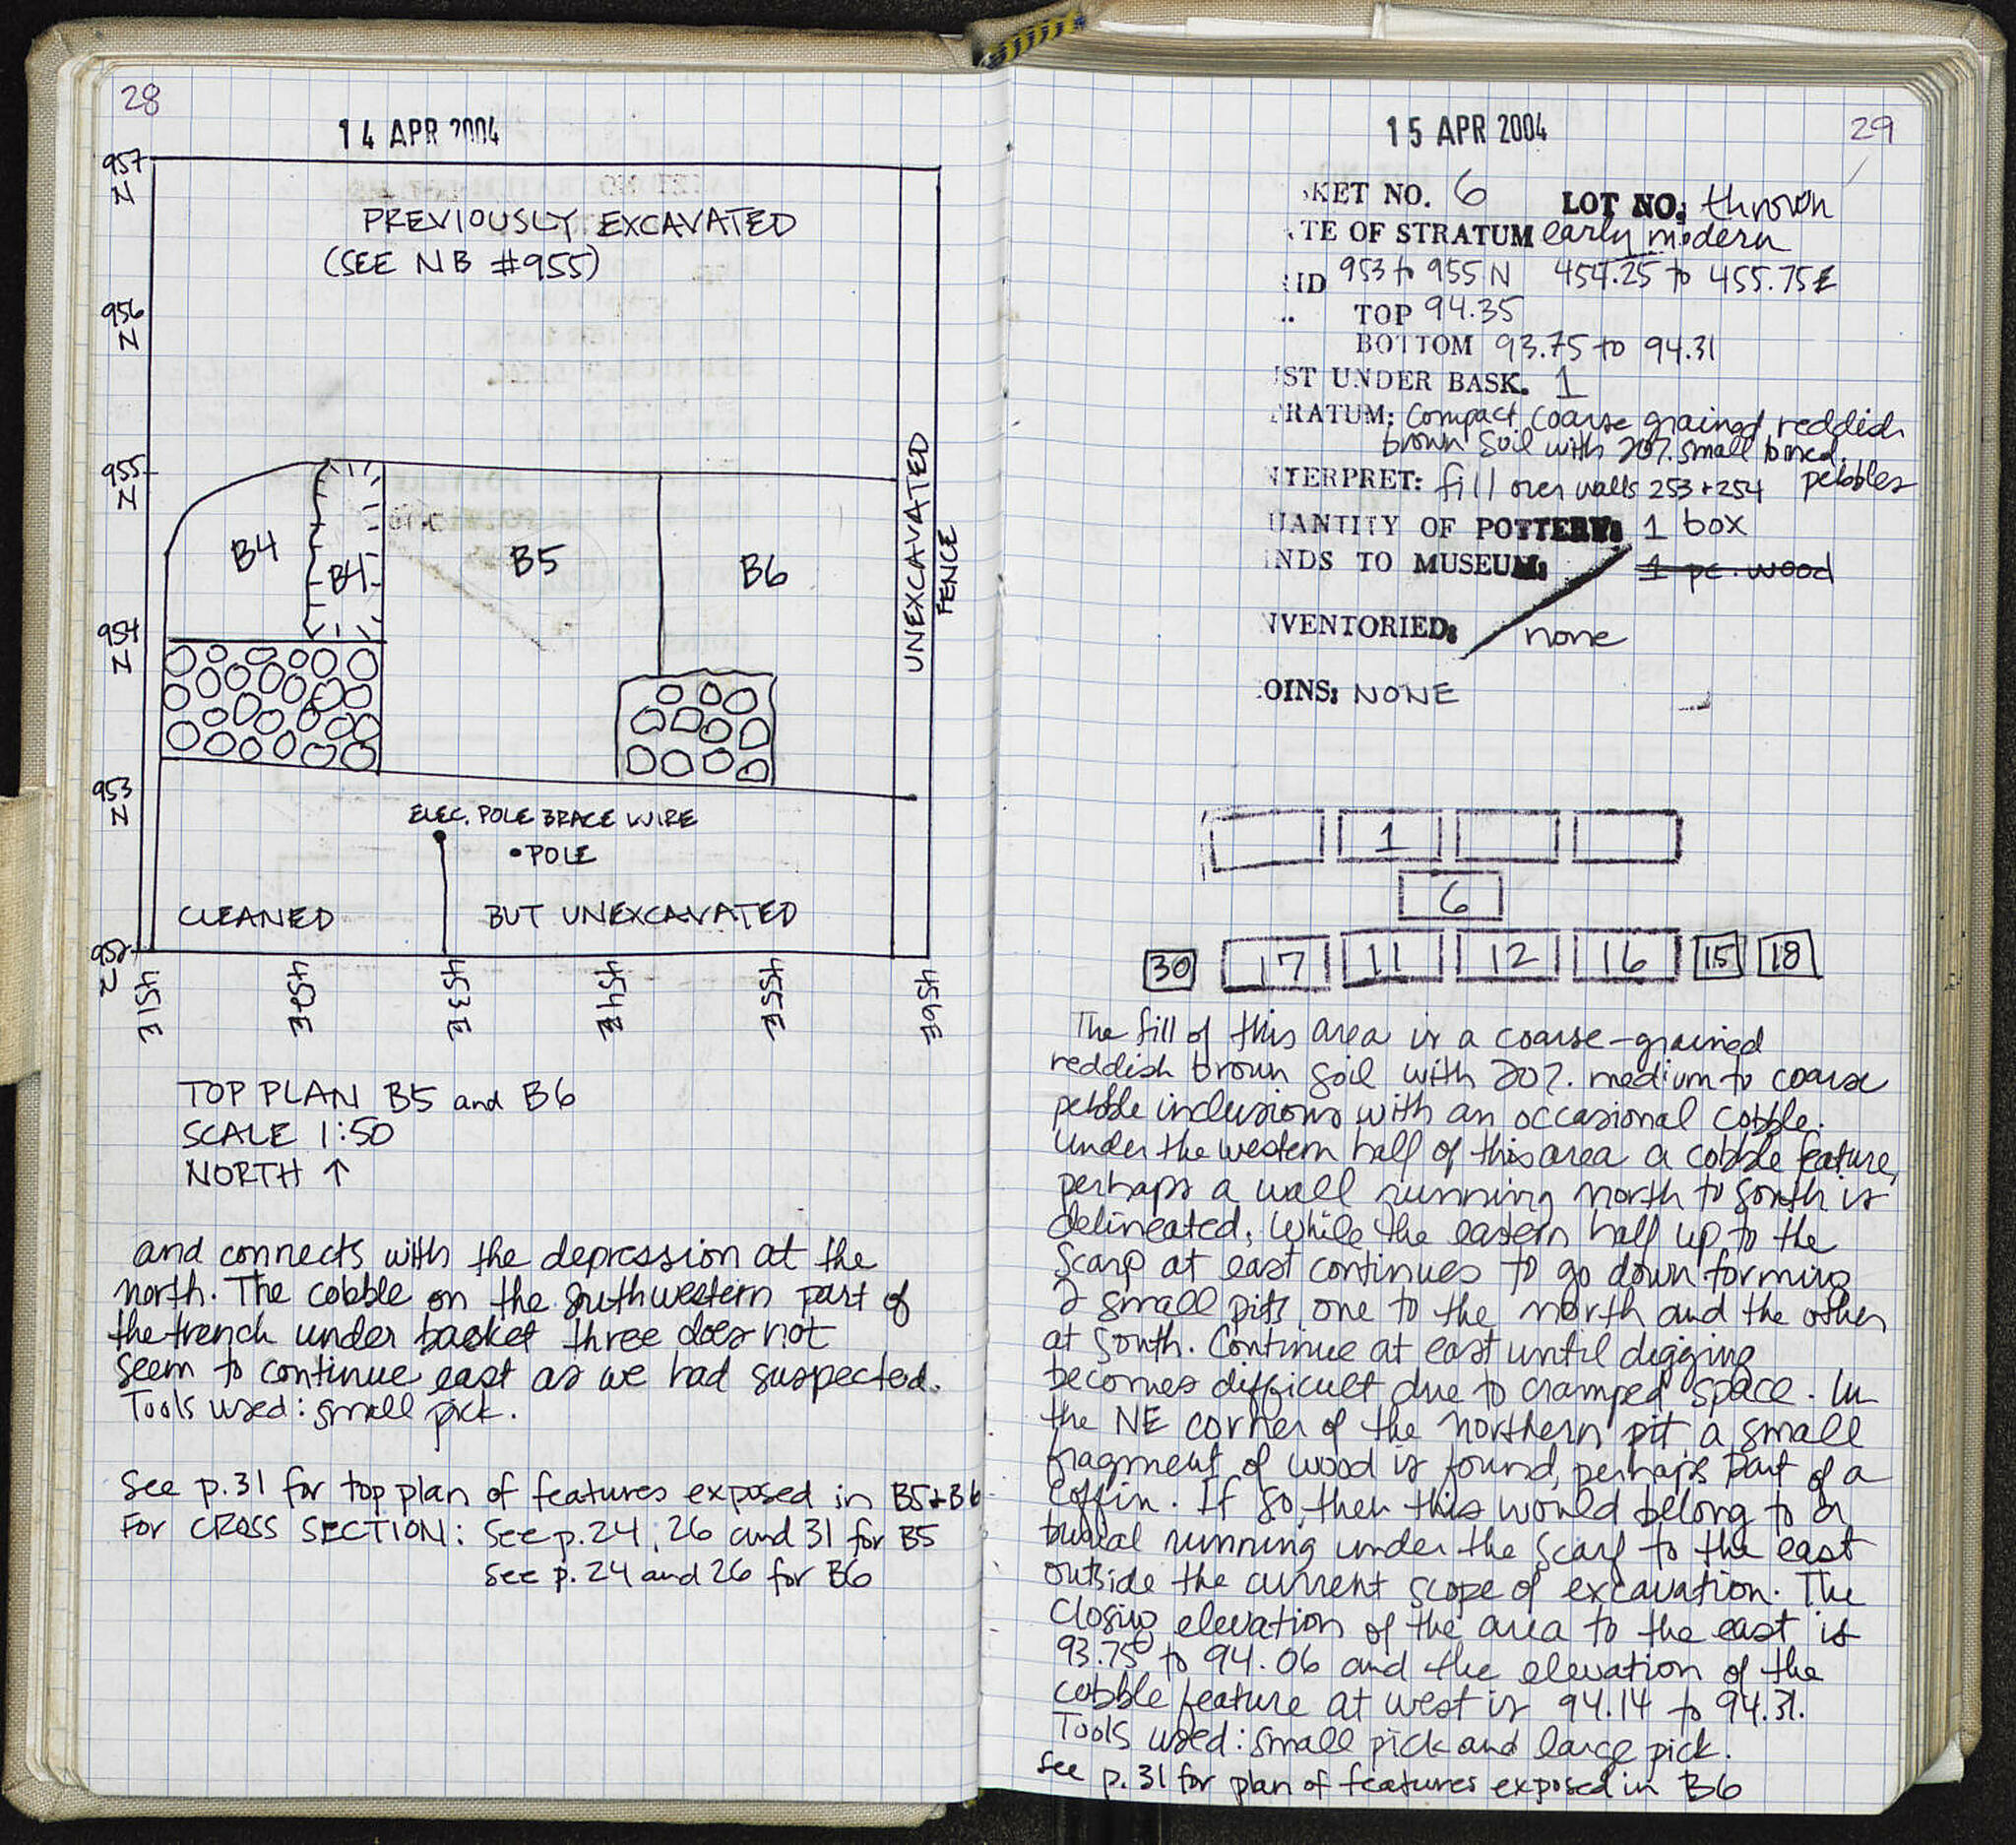 28
14 APR 2004
957 N
PREVIOUSLY EXCAVATED
(SEE NB #955)
956 N
955 N
B4
B4
B5
B6
UNEXCAVATED
FENCE
954 N
953 N
ELEC. POLE BRACE WIRE
POLE
CLEANED BUT UNEXCAVATED
952 N
451E 452E 453E 454E 455E 456E
TOP PLAN B5 and B6
SCALE 1:50
NORTH ↑
and connects with the depression at the
north. The cobble on the southwestern part of
the trench under basket three does not
seem to continue east as we had suspected.
Tools used: small pick.
See p.31 for top plan of features exposed in B5+B6
FOR CROSS SECTION: See p.24, 26 and 31 for B5
See p.24 and 26 for B6
15 APR 2004
29
KET NO. 6 LOT NO: thrown
TE OF STRATUM early modern
ID 953 to 955 N 454.25 to 455.75 E
TOP 94.35
BOTTOM 93.75 to 94.31
ST UNDER BASK. 1
RATUM: Compact coarse grained reddish
brown soil with 20% small to med.
pebbles
NTERPRET: fill over walls 253+254
UANTITY OF POTTERY: 1 box
INDS TO MUSEUM: 1 pc. wood
NVENTORIED: none
OINS: NONE
1
6
30 17 11 12 16 15 18
The fill of this area is a coarse-grained
reddish brown soil with 20% medium to coarse
pebble inclusions with an occasional cobble.
Under the western half of this area a cobble feature,
perhaps a wall running north to south is
delineated, while the eastern half up to the
scarp at east continues to go down forming
2 small pits, one to the north and the other
at south. Continue at east until digging
becomes difficult due to cramped space. In
the NE corner of the northern pit a small
fragment of wood is found, perhaps part of a
coffin. If so, then this would belong to a
burial running under the scarp to the east
outside the current scope of excavation. The
closing elevation of the area to the east is
93.75 to 94.06 and the elevation of the
cobble feature at west is 94.14 to 94.31.
Tools used: small pick and large pick.
See p.31 for plan of features exposed in B6